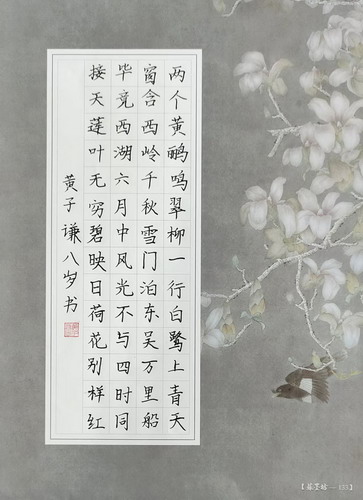 两个黄鹂鸣翠柳一行白鹭上青天
窗含西岭千秋雪门泊东吴万里船
毕竟西湖六月中风光不与四时同
接天莲叶无穷碧映日荷花别样红
黄子谦八岁书